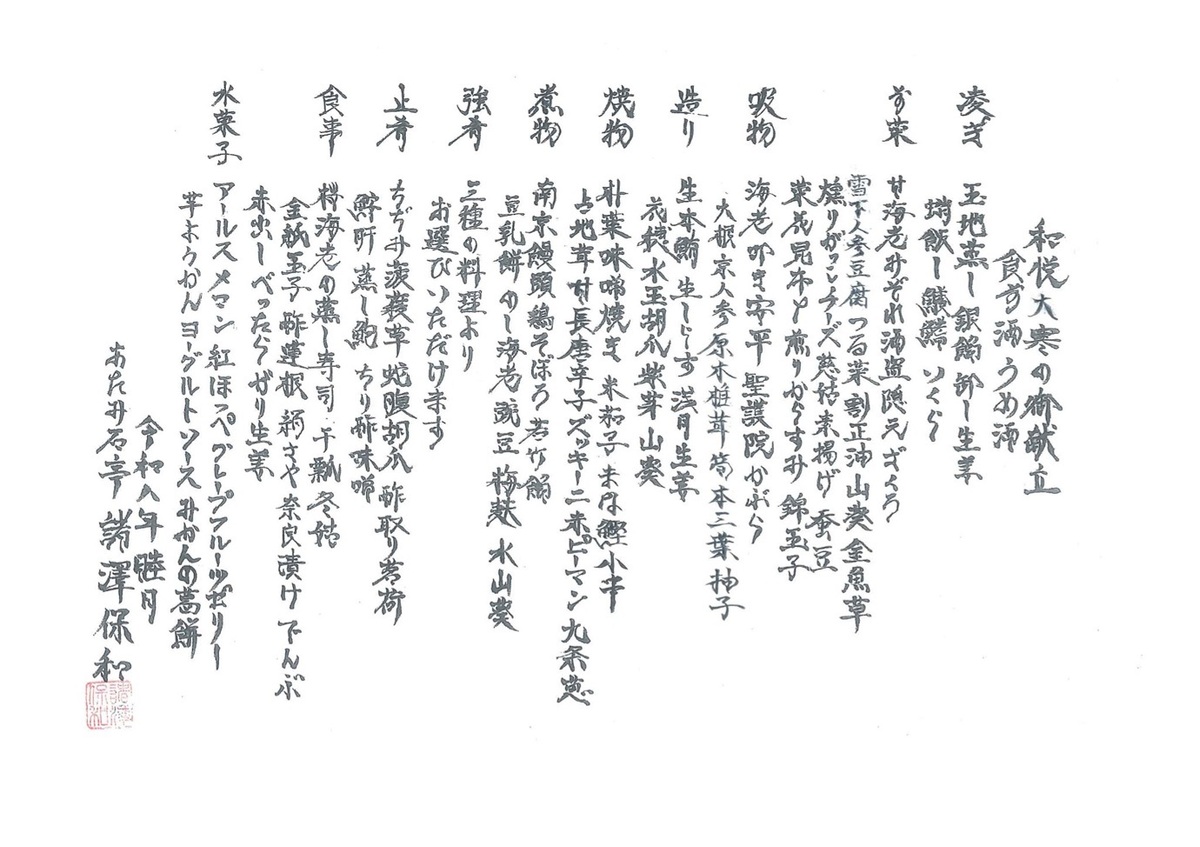 和悦大寒の御献立
食前酒うめ酒
凌ぎ
玉地蒸し 銀餡 卸し生姜
蛸飯し 鱶鰭 いくら
前菜
甘海老みぞれ酒盗 隠元ざくろ
雪下人参豆腐 つる菜 割正油 山葵 金魚草
燻りがっこチーズ 慈姑素揚げ 蚕豆
菜花昆布〆 煎りからすみ 錦玉子
吸物
海老叩き安平 聖護院かぶら
大根 京人参 原木椎茸 筒本三葉 柚子
造り
生本鮪 生しらす 浅月 生姜
花穂 水玉胡瓜 紫芽 山葵
焼物
朴葉味噌焼き 米茄子 まながつお 小串
占地茸 甘長唐辛子 ズッキーニ 赤ピーマン 九条葱
煮物
南京饅頭 鶏そぼろ 若竹餡
豆乳餅 のし海老 豌豆 梅麩 水山葵
強肴
三種の料理より
お選びいただけます
止肴
ちぢみ菠薐草 蛇腹胡瓜 酢取り茗荷
鮟肝 蒸し鮑 ちり酢味噌
食事
桜海老の蒸し寿司 干瓢 冬姑
金紙玉子 酢蓮根 絹さや 奈良漬け でんぶ
赤出し べったら がり生姜
水菓子
アールスメロン 紅ほっぺ グレープフルーツゼリー
芋ようかん ヨーグルトソース みかんの葛餅
令和八年睦月
あたみ石亭 諸澤保和
諸澤保和